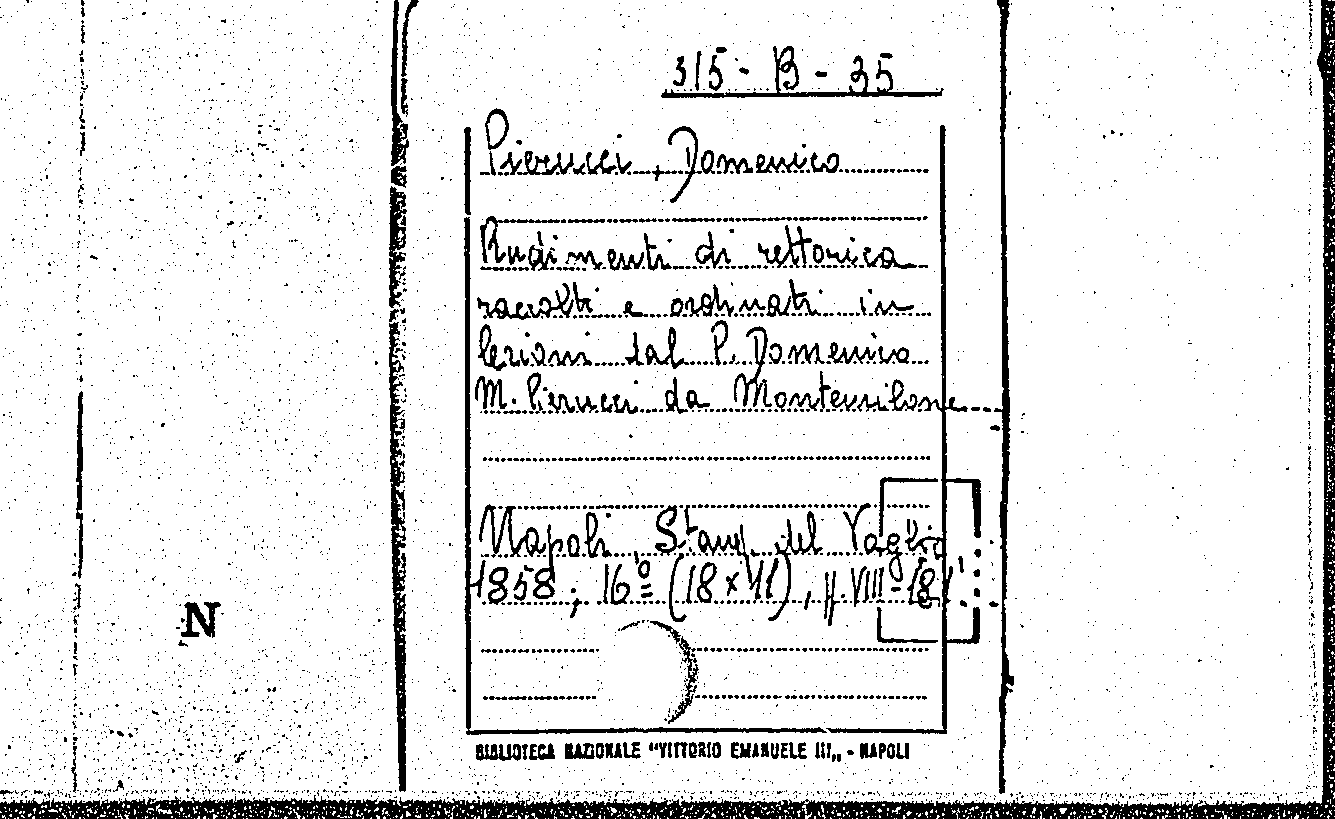 315 - B - 35
Pierucci, Domenico
Rudimenti di rettorica
raccolti e ordinati in
lezioni dal P. Domenico
M. Pierucci da Montemilone
Napoli, Stamp. del Vaglio,
1858; 16º (18 x 11), pp. VIII-181
N
BIBLIOTECA NAZIONALE "VITTORIO EMANUELE III„ - NAPOLI